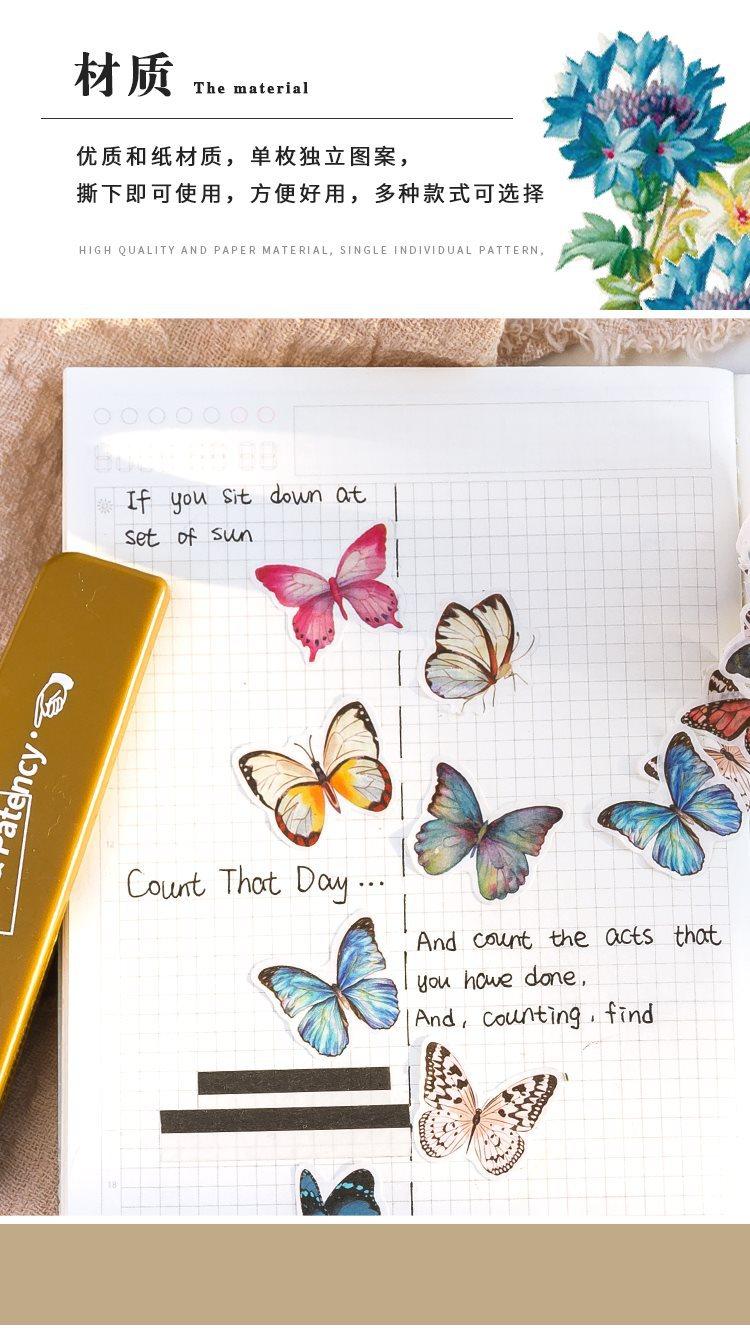 材质 The material
优质和纸材质，单枚独立图案，
撕下即可使用，方便好用，多种款式可选择
HIGH QUALITY AND PAPER MATERIAL, SINGLE INDIVIDUAL PATTERN,
If you sit down at
set of sun
Patency
12
Count That Day...
And count the acts that
you have done,
And, counting, find
18